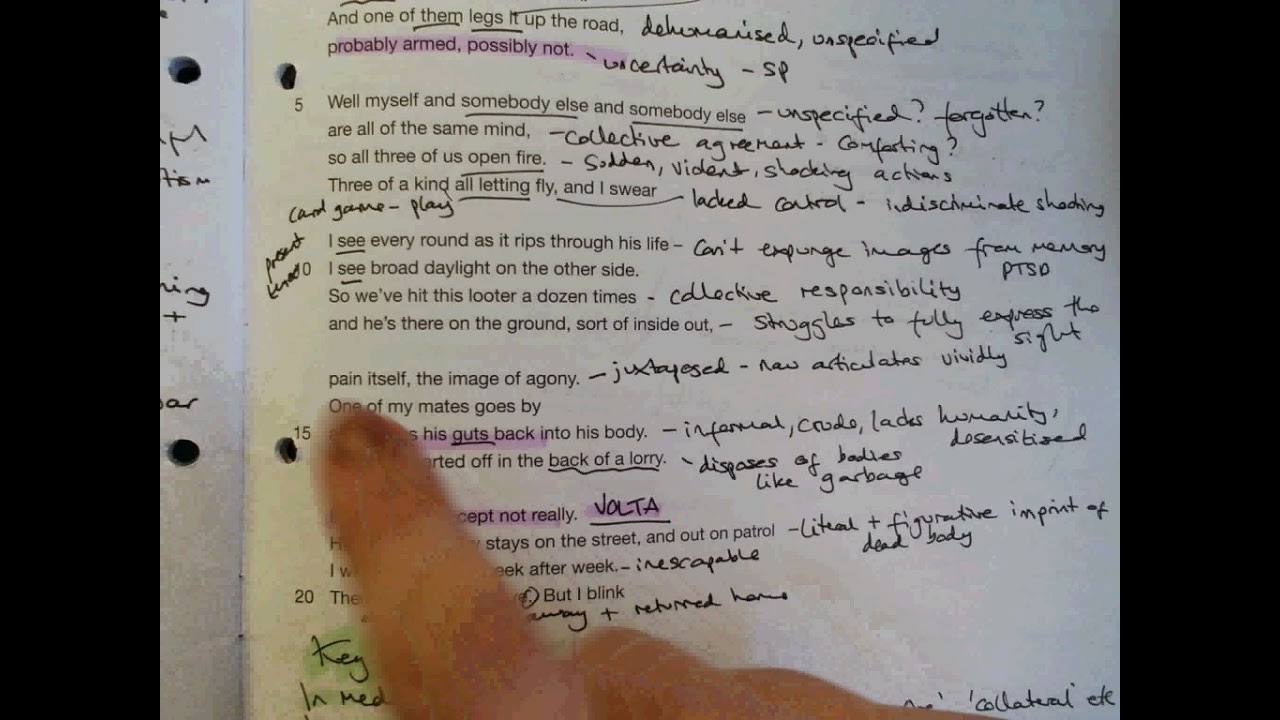 And one of them legs it up the road, dehumanised, unspecified
probably armed, possibly not. uncertainty - SP
5 Well myself and somebody else and somebody else - unspecified? forgotten?
are all of the same mind, - collective agreement - comforting?
so all three of us open fire. - sudden, violent, shocking actions
Three of a kind all letting fly, and I swear - lacked control - indiscriminate shooting
card game - play
I see every round as it rips through his life - can't expunge images from memory
present
0 I see broad daylight on the other side. PTSD
So we've hit this looter a dozen times - collective responsibility
and he's there on the ground, sort of inside out, - struggles to fully express the
sight
pain itself, the image of agony. - juxtaposed - now articulates vividly
One of my mates goes by
15 his guts back into his body. - informal, crude, lacks humanity,
desensitised
arted off in the back of a lorry. disposes of bodies
like garbage
cept not really. VOLTA
stays on the street, and out on patrol - literal + figurative imprint of
dead body
I w eek after week. - inescapable
20 The But I blink
away + returned home
Key
In med 'collateral' etc